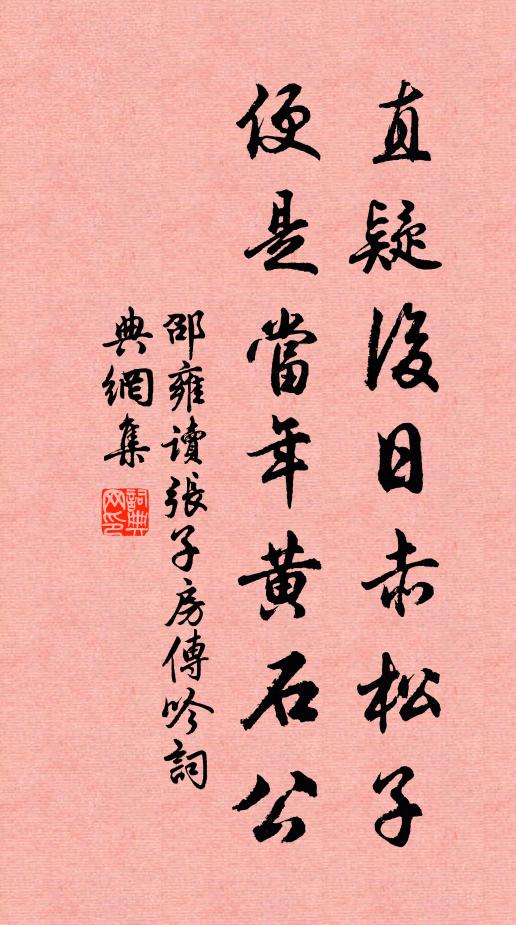 直疑後日赤松子
便是當年黃石公
邵雍讀張子房傳吟詞
典網集
詞典網印